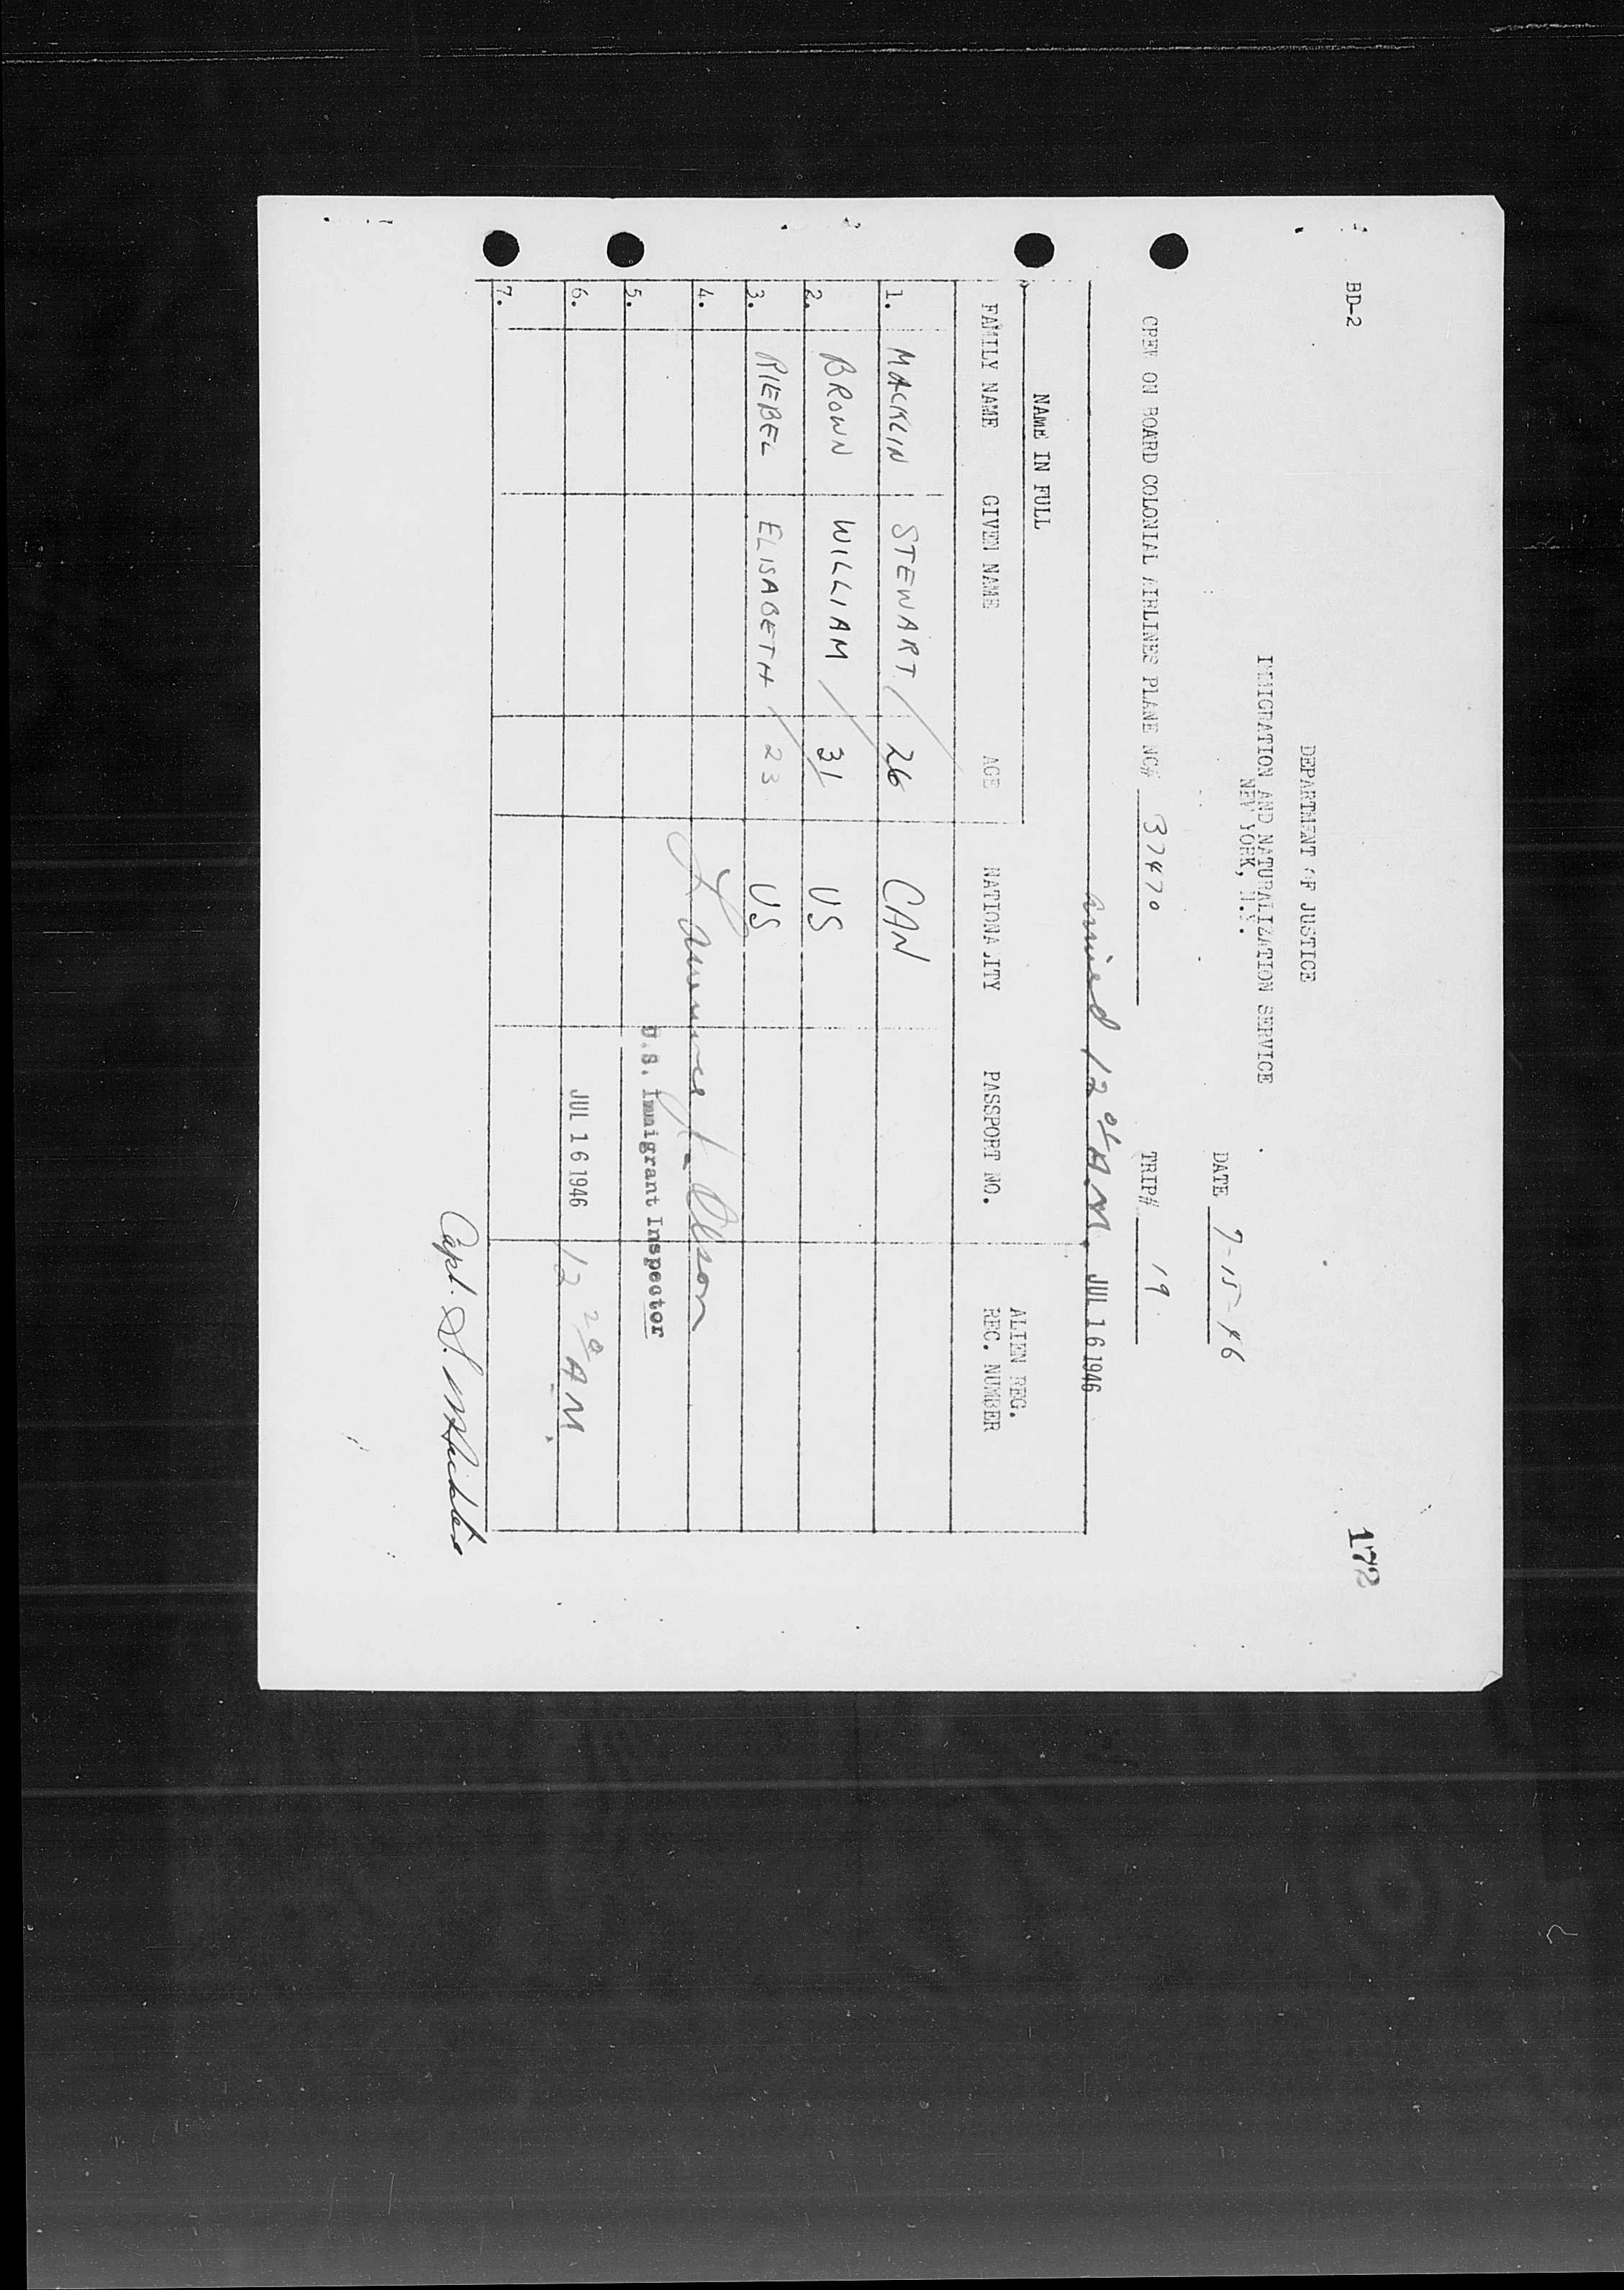 BD-2
172
DEPARTMENT OF JUSTICE
IMMIGRATION AND NATURALIZATION SERVICE
NEW YORK, N.Y.
DATE 7-15-46
CREW ON BOARD COLONIAL AIRLINES PLANE NC# 37470 TRIP# 19
arrived 12 A.M. JUL 16 1946
NAME IN FULL
FAMILY NAME GIVEN NAME AGE NATIONALITY PASSPORT NO. ALIEN REG. REC. NUMBER
1. MACKLIN STEWART / 26 CAN
2. BROWN WILLIAM / 31 US
3. RIEBEL ELISABETH / 23 US
4.
Lawrence Olson
5.
U.S. Immigrant Inspector
6. JUL 16 1946 12 20 AM.
7.
Capt. S. Macklin